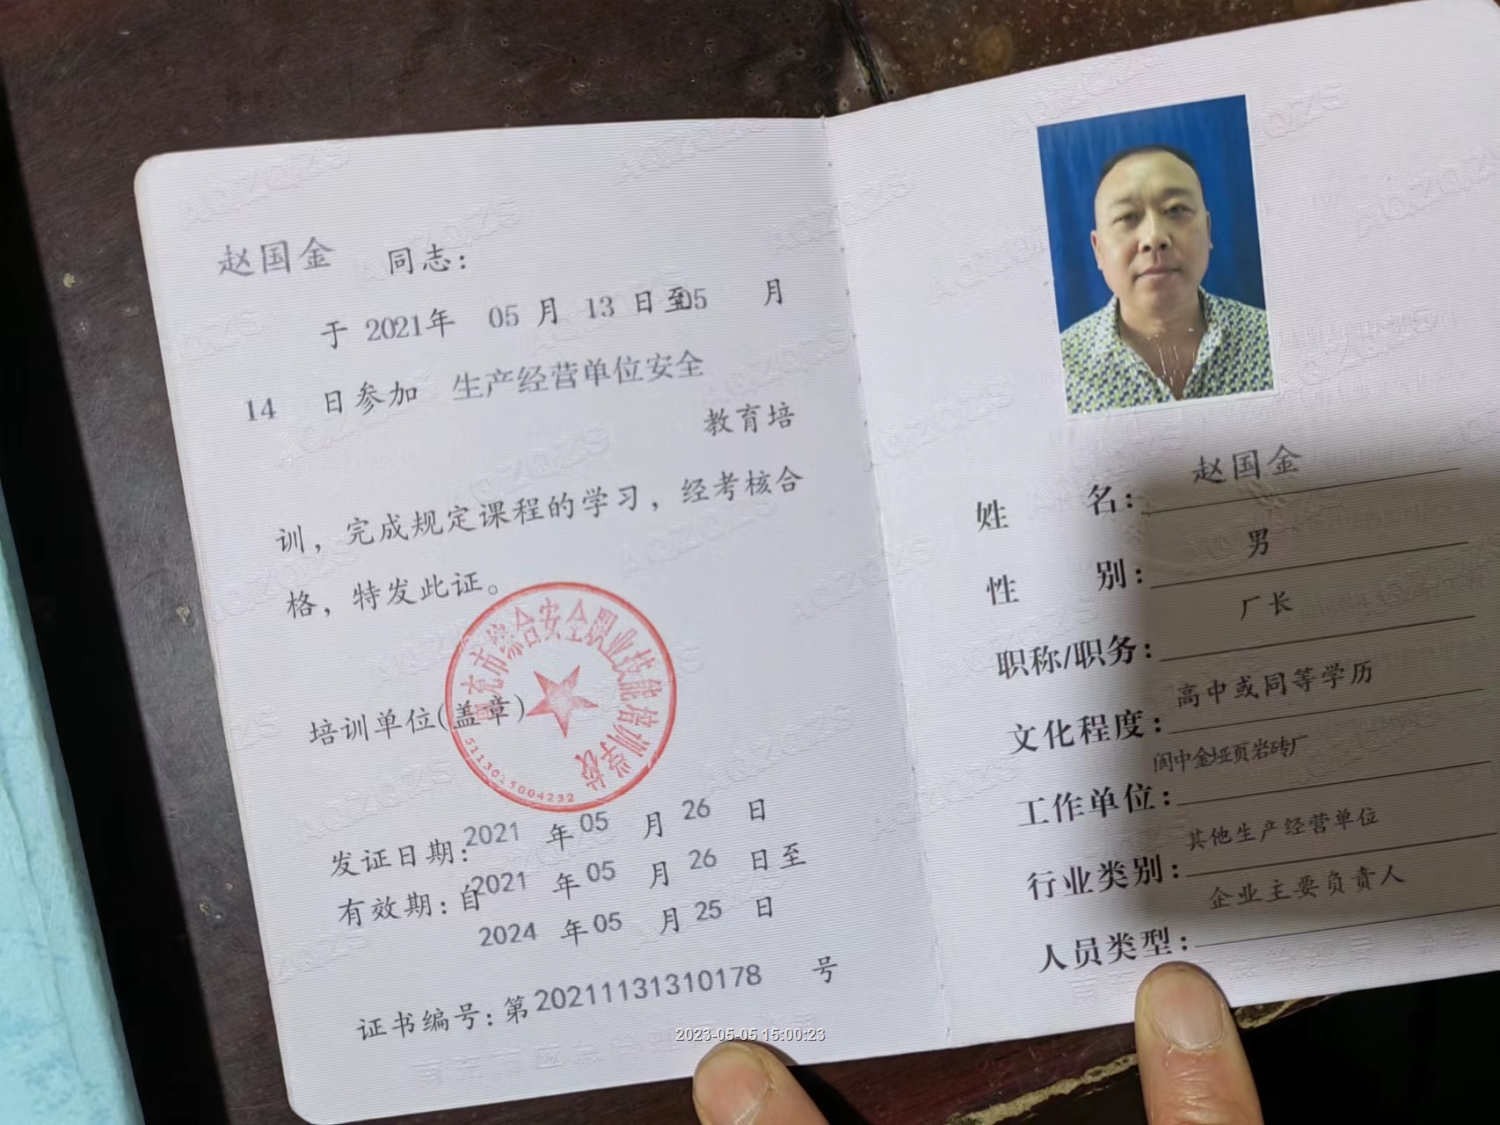 赵国金 同志：
于 2021年 05 月 13 日至05 月
14 日参加 生产经营单位安全
教育培
训，完成规定课程的学习，经考核合
格，特发此证。
培训单位(盖章)
南充市综合安全职业技能培训学校
5113025004232
发证日期：2021 年 05 月 26 日
有效期：自2021 年 05 月 26 日至
2024 年 05 月 25 日
证书编号：第 20211131310178 号
姓 名：赵国金
性 别：男
职称/职务：厂长
文化程度：高中或同等学历
工作单位：阆中金垭页岩砖厂
行业类别：其他生产经营单位
人员类型：企业主要负责人
AQZQZS
2023-05-05 15:00:23